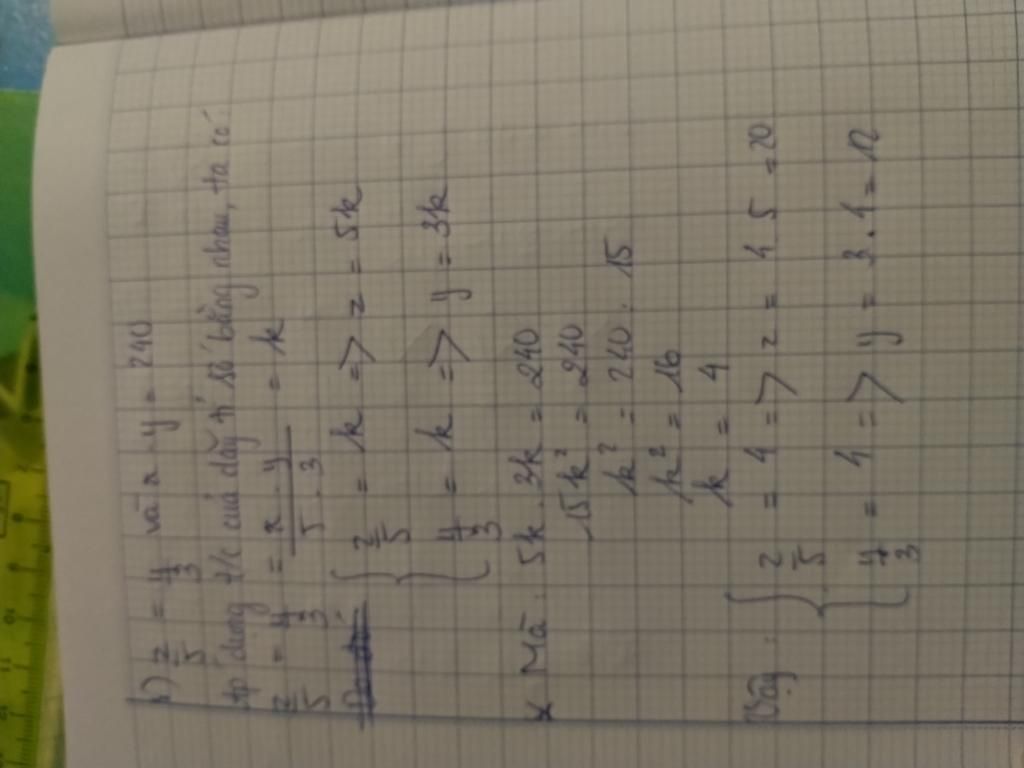 b) x/5 = y/3 và x . y = 240
Áp dụng t/c của dãy tỉ số bằng nhau, ta có
x/5 = y/3 = x . y / 5 . 3 = k
{ x/5 = k => x = 5k
y/3 = k => y = 3k
* Mà : 5k . 3k = 240
15k² = 240
k² = 240 : 15
k² = 16
k = 4
Vậy : { x/5 = 4 => x = 4 . 5 = 20
y/3 = 4 => y = 3 . 4 = 12